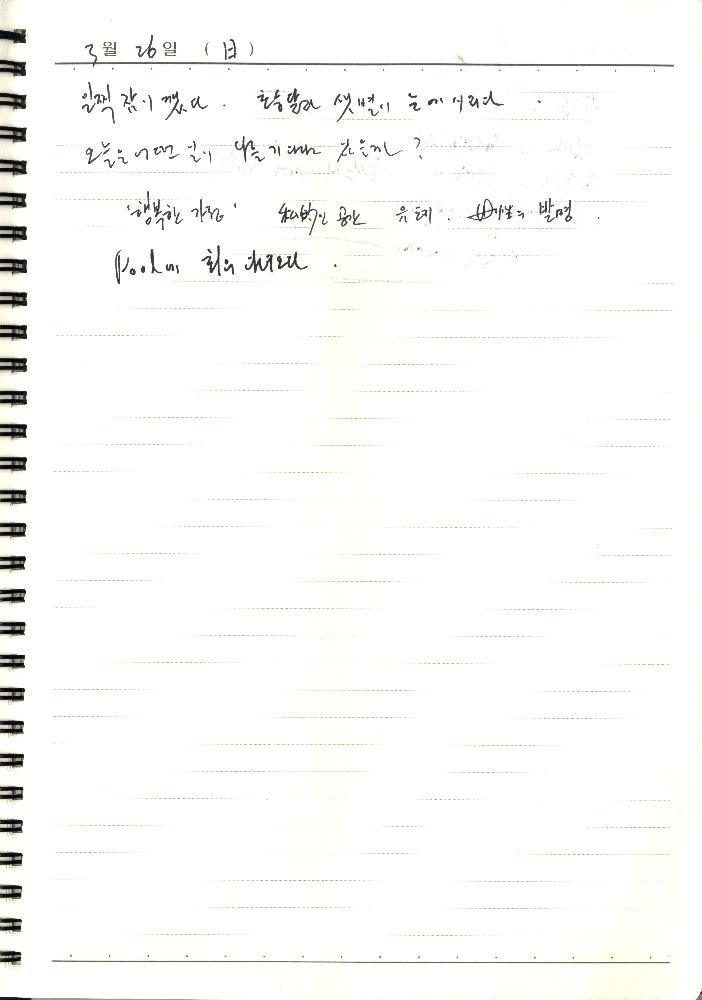 3월 26일 (日)
일찍 잠이 깼다. 초승달과 샛별이 눈에 시리다.
오늘은 어떤 일이 나를 기다리고 있을까?
'행복한 가정' 私的인 공간 유테. 의 발명.
Pool에 회의 다녀오다.